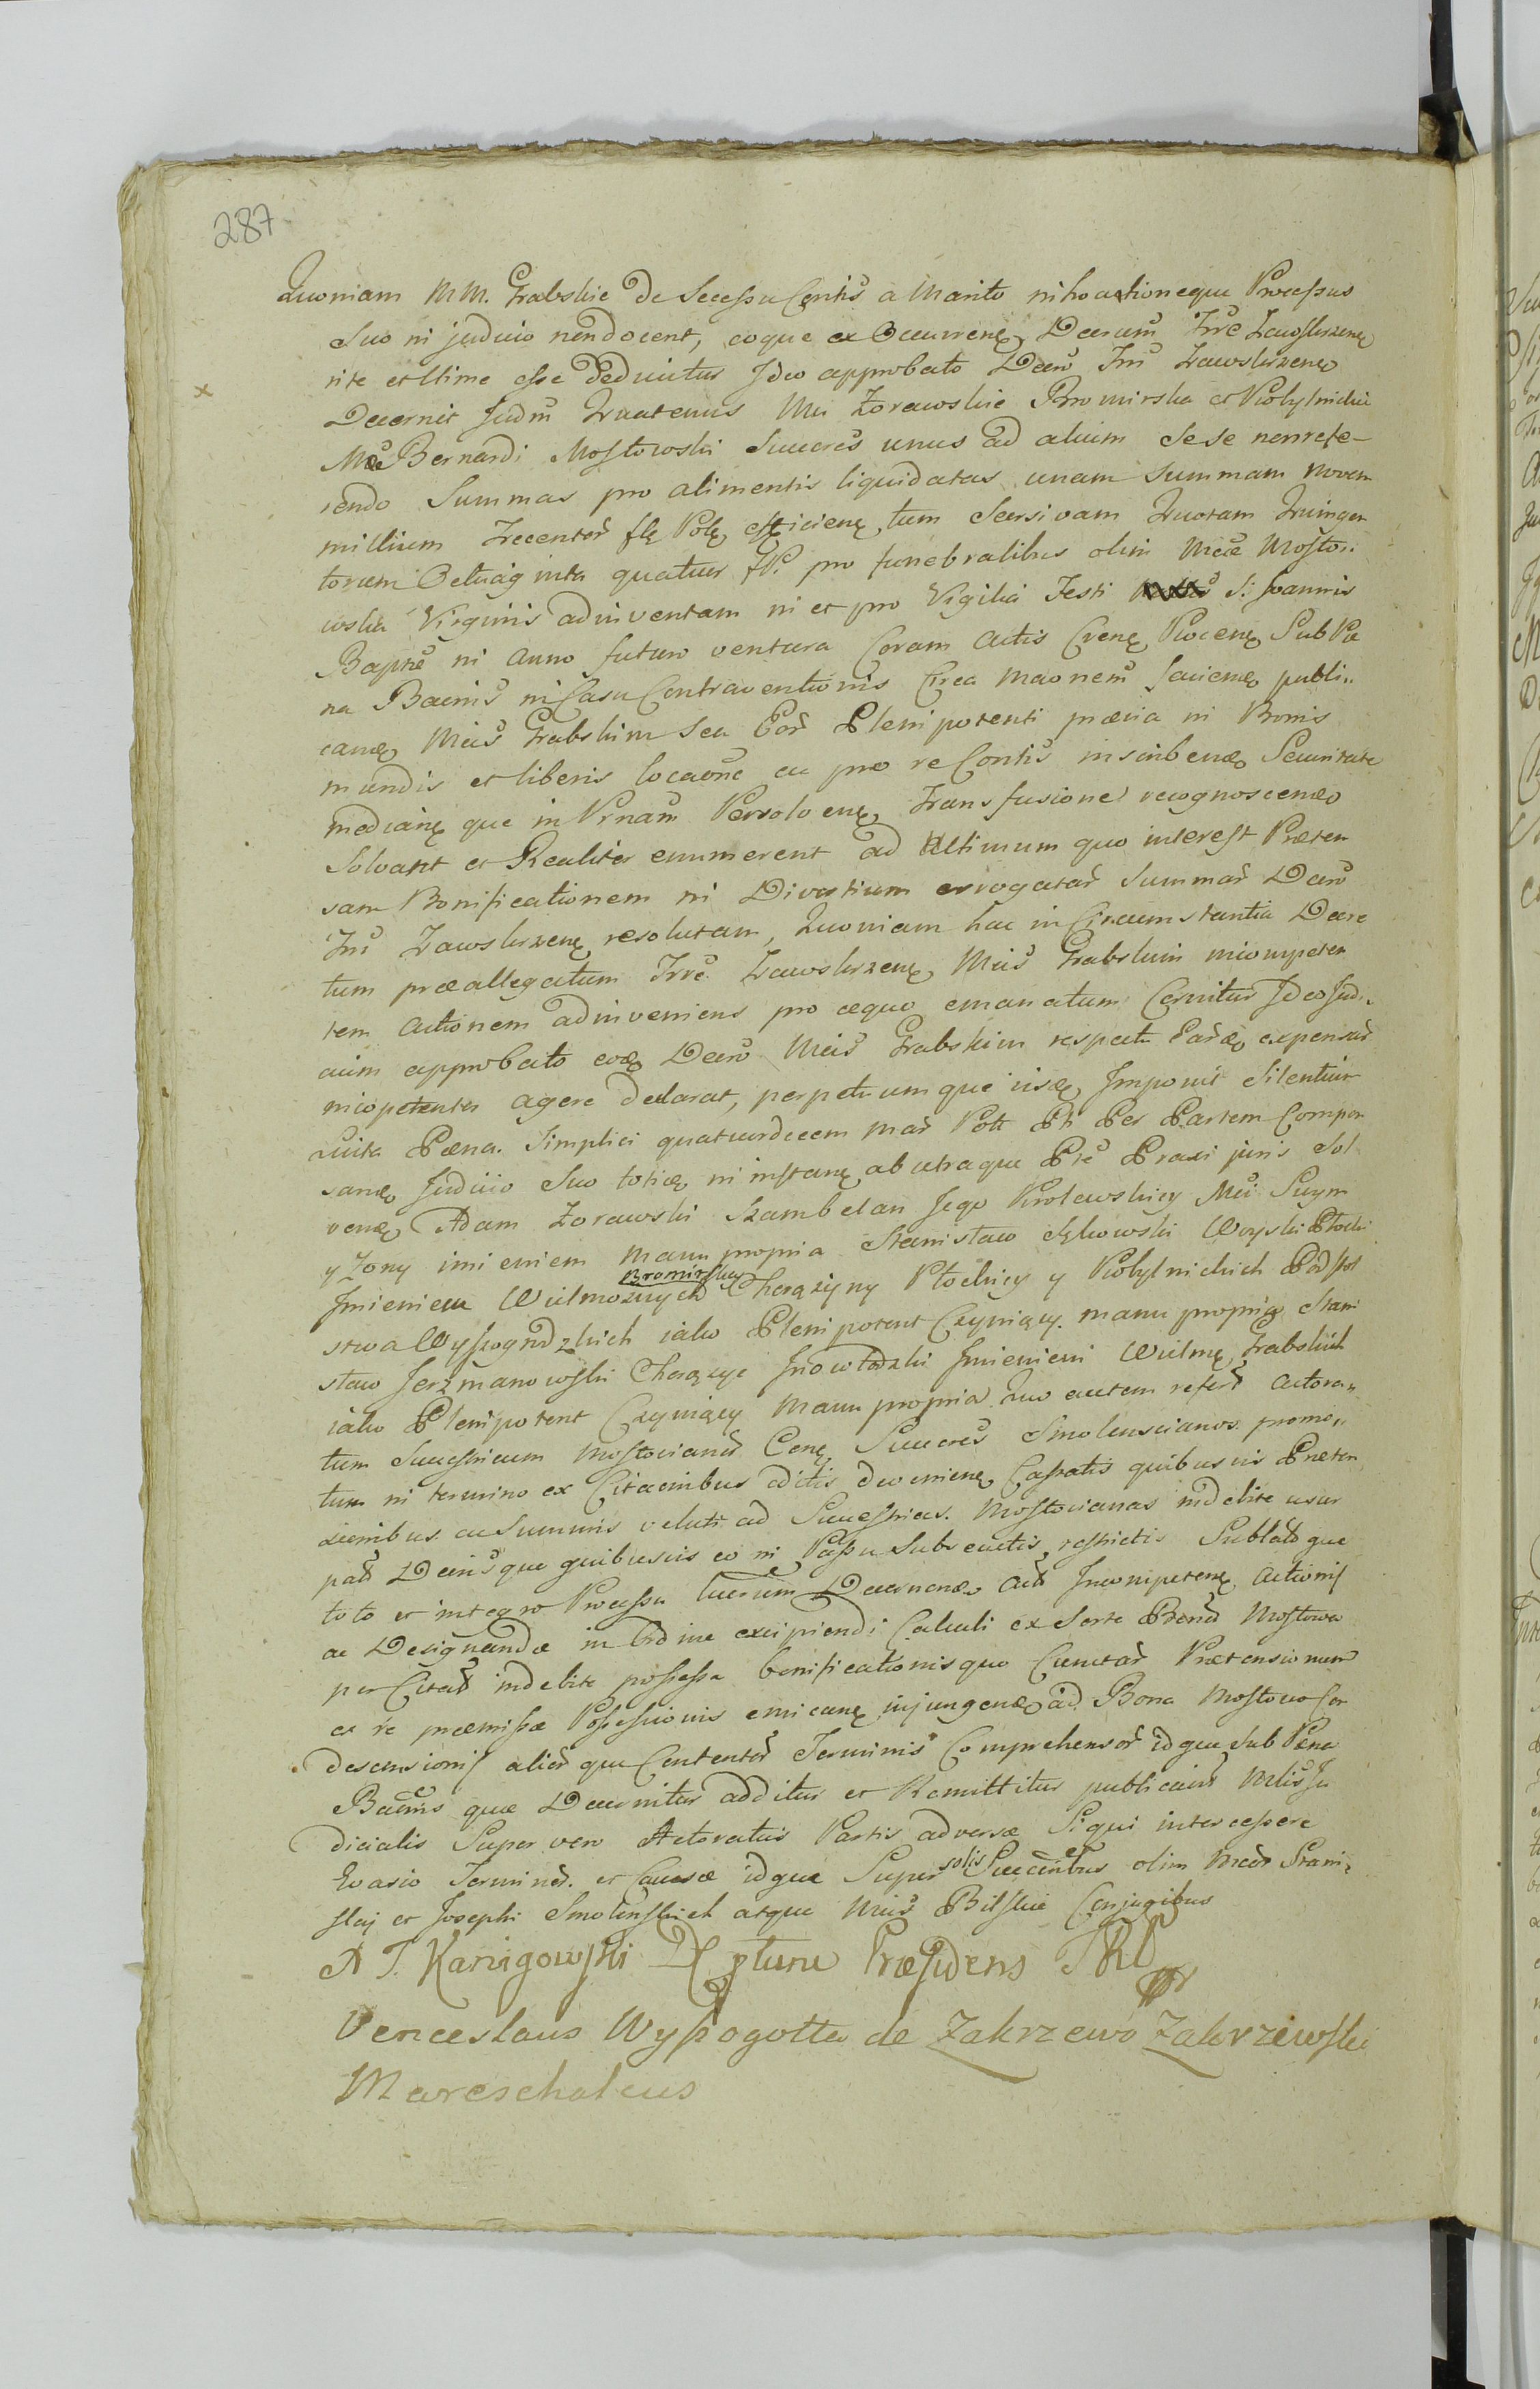 287
Quoniam MM. Grabskie de Secessu Contis a Marito nihoationeque Processus
Suo ni judicio nendocent, eoque ex Occurrenę Decrum Trre Zawskrzenę
rite et ltime esse deducitur Ideo approbato Decro Tris Zawskrzeneo
Decernit Judm Quatenus Mci Zorawskie Bromirska et Kobylnickie
Mci Bernardi Mostowski Succres unus ad alium sese nonrefe-
rendo Summas pro alimentis liquidatas unam Summam Novem
millium Trecentor flę Polę efficienę, tum Seorsivam Quotam Quingen
torum Octuaginta quatuor fP. pro funebralibus olim Mcæ Mosto..
wska Virginis adinventam ni et pro Vigilia Festi S: Joannis
Baptæ ni Anno futuro ventura Coram Actis Crenę Plocenę Sub Pæ
na Bacnis ni Casu Contraventionis Circa Maonem faciendę publi..
candę Mcis Grabskim Seu Eor Plenipotenti prævia ni Bonis
mundis et liberis locaone ac pro re Contis inscribendo Securitate
medianę que in Vrnam Persolvenę, Transfusione recognoscendo
Solvant et Realiter enumerent ad Ultimum quo interest Præten
sam Bonificationem ni Divortium errogatar Summar Decro
Tris Zawskrzenę resolutam, Quoniam hac in Circumstantia Decre
tum præallegatum Trre Zawskrzenę, Mcis Grabskim incompeten
tem Actionem adinveniens pro æquo emanatum Cernitur Ideo Judi..
cium approbato eodę Decro Mcis Grabskim respectu Earde expensar
incopetenter agere declarat, perpetuumque iisdę Imponit Silentium
Luita Pæna. Simplici quatuordecem Mar Poll Pti Per Partem Compen
sandę Judicio Suo totidę ni instanę ab utraque Pte Praxi juris Sol
vendę Adam Zorawski Szambelan Jego Krolewskiey Mci Swym
y Zony imieniem manu propria Stanisław Sękowski Woyski Płocki
Imieniem Wielmoznych Bromirskiey Chorązyny Płockiey y Kobylnickich Podstol
stwa Wyszogrodzkich iako Plenipotent Czyniący. manu propria Stani
sław Jerzmanowski Chorązyc Inowłodzki Imieniem Wielmę Grabskich
iako Plenipotent Czyniący Manu propria Quo autem refert Actora..
tum Successricum Mostovianar Conę Succres Smolenscianos promo..
tum ni termino ex Citaonibus editis devenienę Cassatis quibusvis Præten
sionibus ac Summis veluti ad Successrices. Mostovianas indebite usur
pat Decrisque quibusvis eo ni Passu Subsecutis, restrictis Sublatoque
toto et integro Processu luerum Decernendo Act Incompetenę Actionis
ac Designandæ in Ordine excipiendi Calculi ex Sorte Bonor Mostowo
per Citatos indebite possessa bonificationisque Cunctar Prætensionum
ex re præmissæ Possessionis emicanę injungendo ad Bona Mostowo Con
descensionis alior que Contentor Terminis Comprehensor idque Sub Pæna
Bacnis quæ Decernitur additur et Remittitur publicand Mtlis Ju
dicialis Super vero Actoratus Partis adversæ Siqui intercessere
Evasio Terminor. et Causæ idque Super solis Succeribus olim Mcor Stani-
slaj et Josephi Smolinskich atque Mcis Bilskie Conjugibus
A T. Karnigowski Dptune Præsidens T K D
mpr
Venceslaus Wyssogotta de Zakrzewo Zakrzewski
Mareschalcus